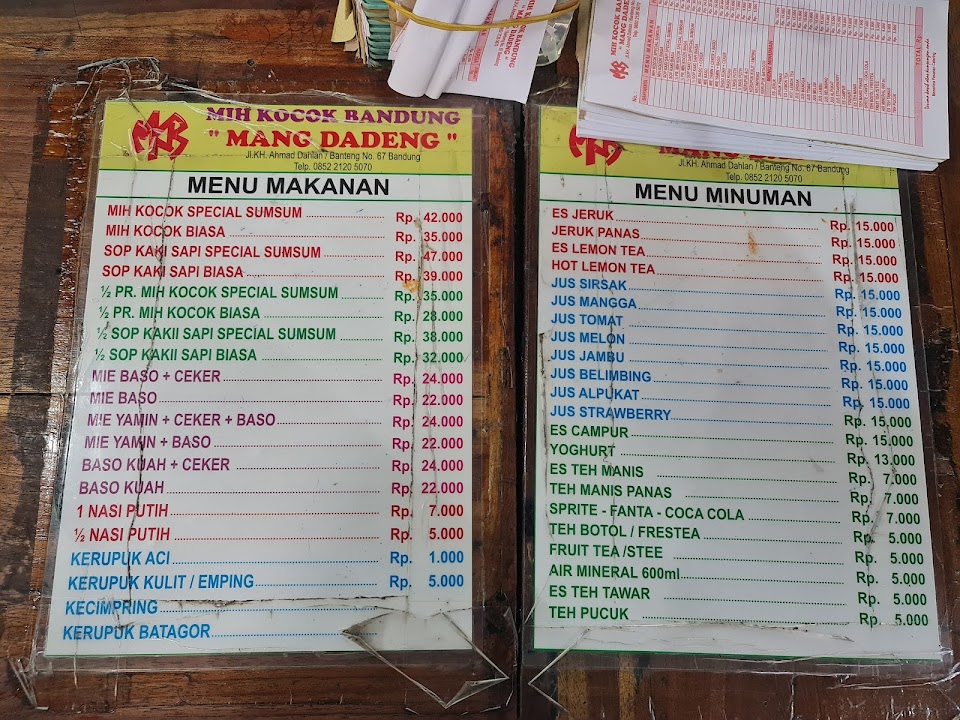 MIH KOCOK BANDUNG
" MANG DADENG "
Jl.KH. Ahmad Dahlan / Banteng No. 67 Bandung
Telp. 0852 2120 5070
MENU MAKANAN
MIH KOCOK SPECIAL SUMSUM Rp. 42.000
MIH KOCOK BIASA Rp. 35.000
SOP KAKI SAPI SPECIAL SUMSUM Rp. 47.000
SOP KAKI SAPI BIASA Rp. 39.000
½ PR. MIH KOCOK SPECIAL SUMSUM Rp. 35.000
½ PR. MIH KOCOK BIASA Rp. 28.000
½ SOP KAKII SAPI SPECIAL SUMSUM Rp. 38.000
½ SOP KAKII SAPI BIASA Rp. 32.000
MIE BASO + CEKER Rp. 24.000
MIE BASO Rp. 22.000
MIE YAMIN + CEKER + BASO Rp. 24.000
MIE YAMIN + BASO Rp. 22.000
BASO KUAH + CEKER Rp. 24.000
BASO KUAH Rp. 22.000
1 NASI PUTIH Rp. 7.000
½ NASI PUTIH Rp. 5.000
KERUPUK ACI Rp. 1.000
KERUPUK KULIT / EMPING Rp. 5.000
KECIMPRING
KERUPUK BATAGOR
Jl.KH. Ahmad Dahlan / Banteng No. 67 Bandung
Telp. 0852 2120 5070
MENU MINUMAN
ES JERUK Rp. 15.000
JERUK PANAS Rp. 15.000
ES LEMON TEA Rp. 15.000
HOT LEMON TEA Rp. 15.000
JUS SIRSAK Rp. 15.000
JUS MANGGA Rp. 15.000
JUS TOMAT Rp. 15.000
JUS MELON Rp. 15.000
JUS JAMBU Rp. 15.000
JUS BELIMBING Rp. 15.000
JUS ALPUKAT Rp. 15.000
JUS STRAWBERRY Rp. 15.000
ES CAMPUR Rp. 15.000
YOGHURT Rp. 13.000
ES TEH MANIS Rp. 7.000
TEH MANIS PANAS Rp. 7.000
SPRITE - FANTA - COCA COLA Rp. 7.000
TEH BOTOL / FRESTEA Rp. 5.000
FRUIT TEA /STEE Rp. 5.000
AIR MINERAL 600ml Rp. 5.000
ES TEH TAWAR Rp. 5.000
TEH PUCUK Rp. 5.000
MIH KOCOK BANDUNG
"MANG DADENG"
MENU MAKANAN
TOTAL Rp.